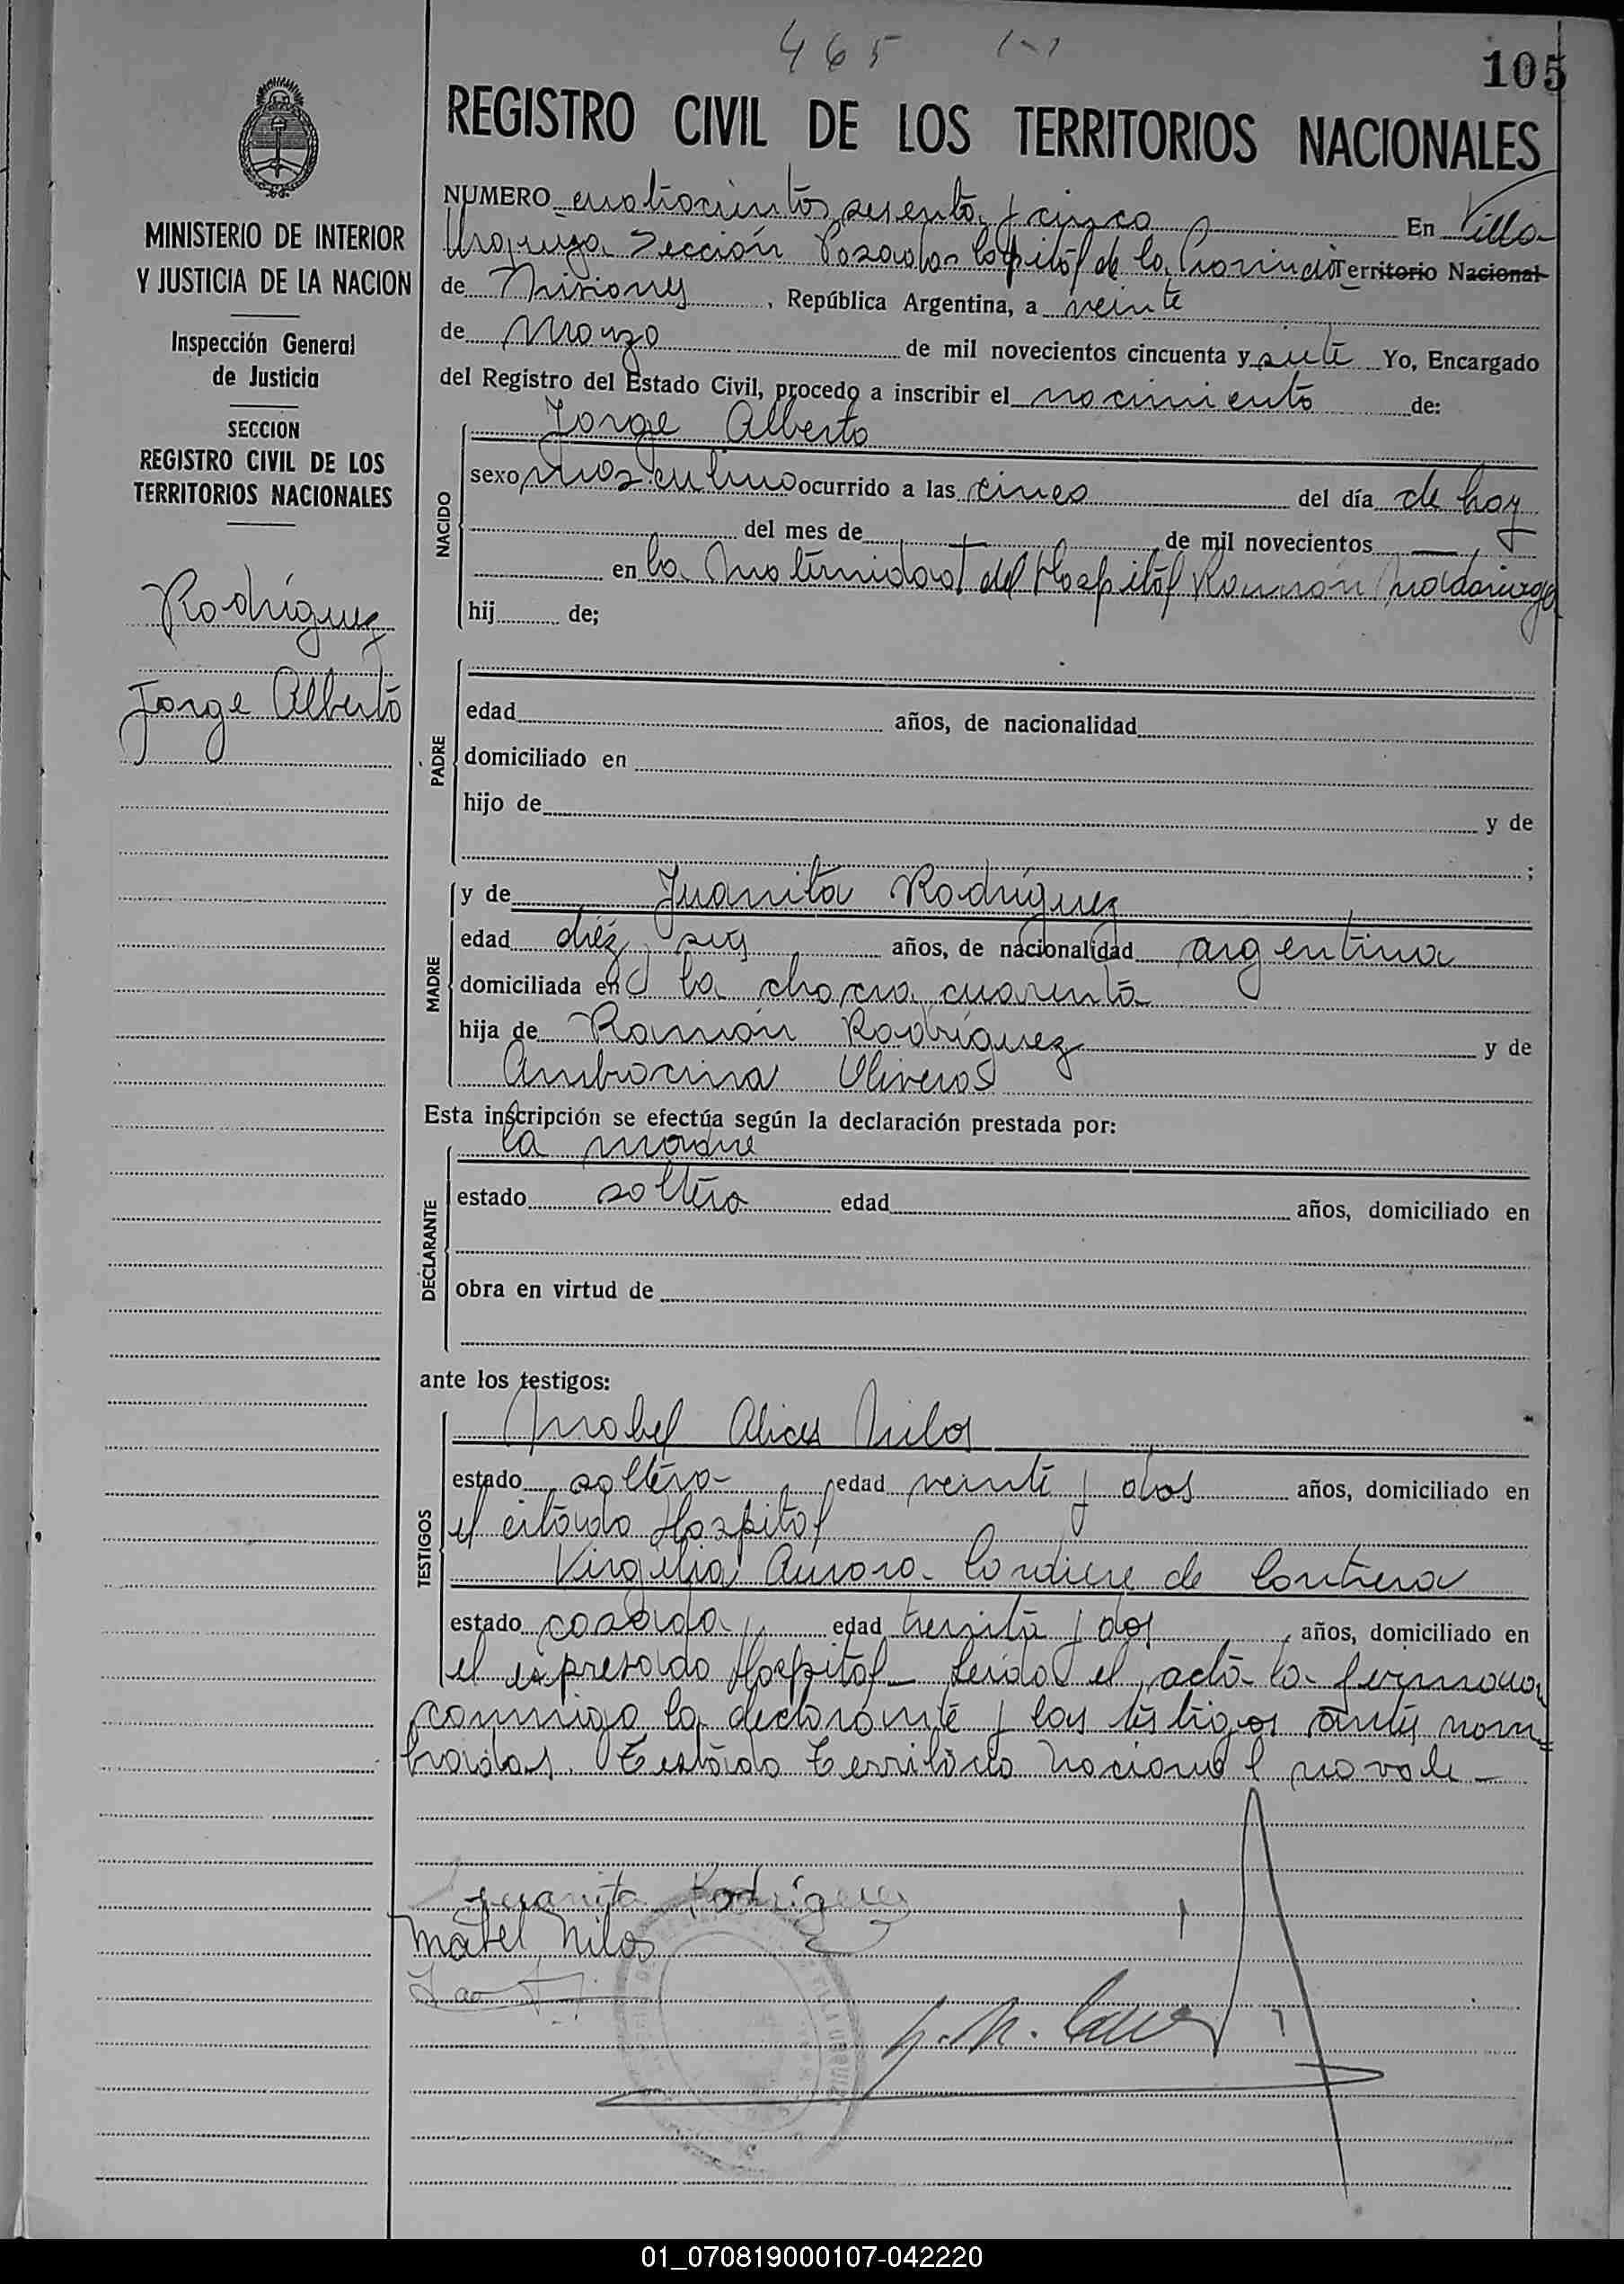 465
105
REGISTRO CIVIL DE LOS TERRITORIOS NACIONALES
MINISTERIO DE INTERIOR
Y JUSTICIA DE LA NACION
Inspección General
de Justicia
SECCION
REGISTRO CIVIL DE LOS
TERRITORIOS NACIONALES
Rodríguez
Jorge Alberto
NUMERO cuatrocientos sesenta y cinco En Villa
Urquiza Sección Posadas Capital de la Provincia Territorio Nacional
de Misiones, República Argentina, a veinte
de Marzo de mil novecientos cincuenta y siete Yo, Encargado
del Registro del Estado Civil, procedo a inscribir el nacimiento de:
Jorge Alberto
NACIDO
sexo masculino ocurrido a las cinco del día de hoy
del mes de de mil novecientos
en la Maternidad del Hospital Ramón Madariaga
hij de;
PADRE
edad años, de nacionalidad
domiciliado en
hijo de y de
;
MADRE
y de Juanita Rodríguez
edad diéz y seis años, de nacionalidad argentina
domiciliada en la chacra cuarenta
hija de Ramón Rodríguez y de
Ambrocina Oliveros
Esta inscripción se efectúa según la declaración prestada por:
la madre
DECLARANTE
estado soltera edad años, domiciliado en
obra en virtud de
ante los testigos:
Mabel Alicia Nilos
TESTIGOS
estado soltera edad veinte y dos años, domiciliado en
el citado Hospital
Virgilia Aurora de
estado casada edad treinta y dos años, domiciliado en
el expresado Hospital - Leida el acta la firmaron
conmigo la declarante y los testigos antes nom=
brados. Testado Territorio Nacional no vale -
Juanita Rodríguez
Mabel Nilos
01_070819000107-042220